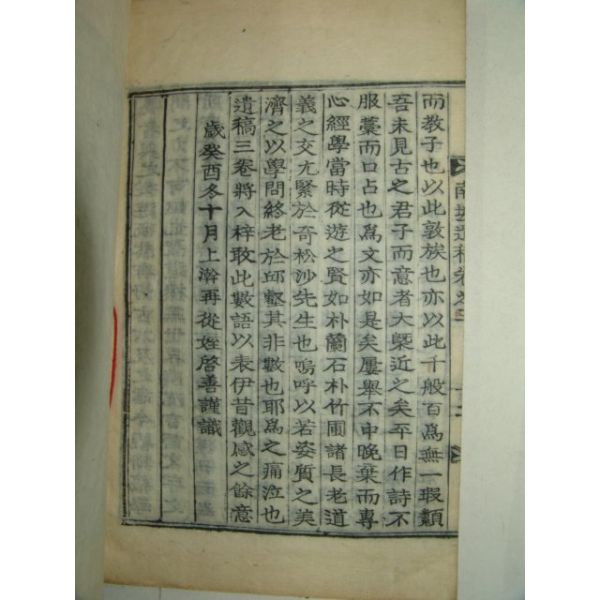 而教子也以此敦族也亦以此千般百爲無一瑕纇
吾未見古之君子而意者大槩近之矣平日作詩不
服藁而口占也爲文亦如是矣屢舉不中晩棄而專
心經學當時從遊之賢如朴蘭石朴竹圃諸長老道
義之交尤緊於奇松沙先生也嗚呼以若姿質之美
濟之以學問終老於邱壑其非數也耶爲之痛泣也
遺稿三卷將入梓敢此數語以表伊昔觀感之餘意
歲癸酉冬十月上澣再從姪啓善謹識